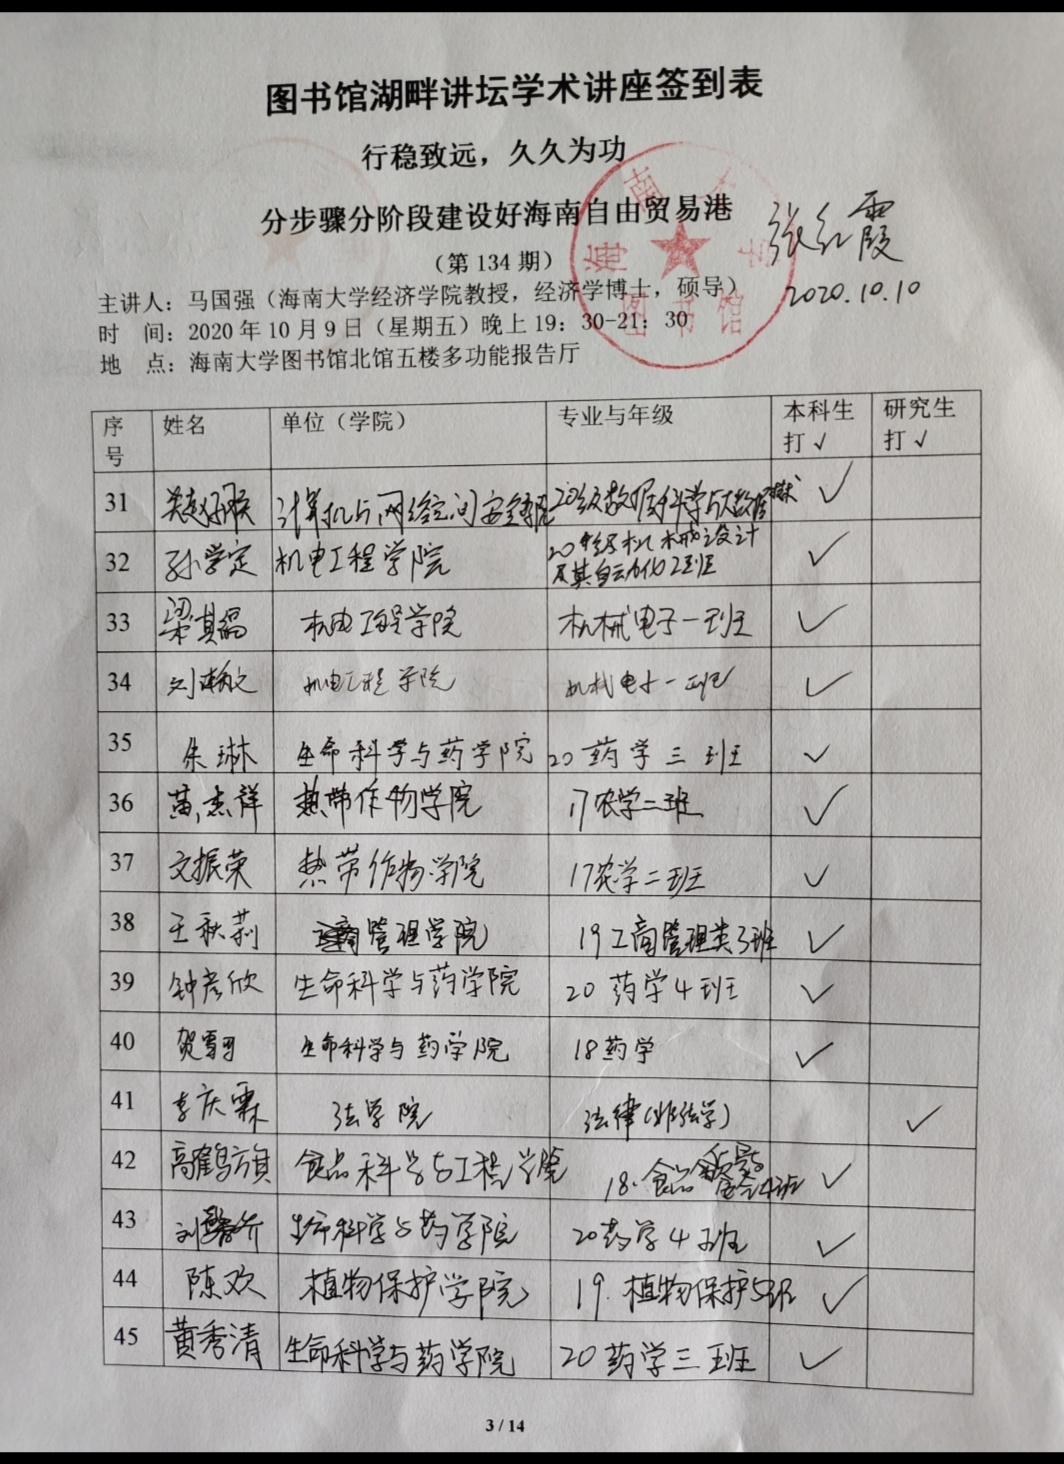 图书馆湖畔讲坛学术讲座签到表
行稳致远，久久为功
分步骤分阶段建设好海南自由贸易港
张红霞
（第 134 期）
2020.10.10
海南大学
图书馆
主讲人：马国强（海南大学经济学院教授，经济学博士，硕导）
时 间：2020 年 10 月 9 日（星期五）晚上 19：30-21：30
地 点：海南大学图书馆北馆五楼多功能报告厅
序号 姓名 单位（学院） 专业与年级 本科生打√ 研究生打√
31 计算机与网络空间安全学院 20级数据科学与大数据技术 ✓
32 孙学定 机电工程学院 20级机械设计及其自动化2班 ✓
33 梁其 机电工程学院 机械电子一班 ✓
34 刘 机电工程学院 机械电子一班 ✓
35 朱琳 生命科学与药学院 20药学三班 ✓
36 苗杰祥 热带作物学院 17农学二班 ✓
37 文振荣 热带作物学院 17农学二班 ✓
38 王秋莉 管理学院 19工商管理类3班 ✓
39 钟彦欣 生命科学与药学院 20药学4班 ✓
40 贺 生命科学与药学院 18药学 ✓
41 李庆霖 法学院 法律(非法学) ✓
42 高鹤旗 食品科学与工程学院 18.食品 4班 ✓
43 刘 生命科学与药学院 20药学4班 ✓
44 陈欢 植物保护学院 19.植物保护 班 ✓
45 黄秀清 生命科学与药学院 20药学三班 ✓
3 / 14